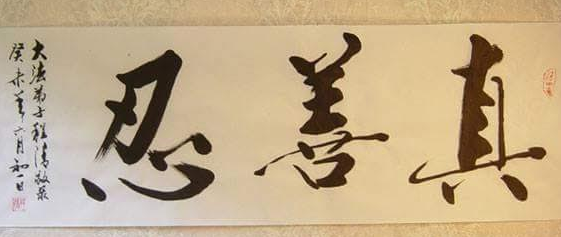 真善忍
大法弟子程清敬录
癸未年六月初一日